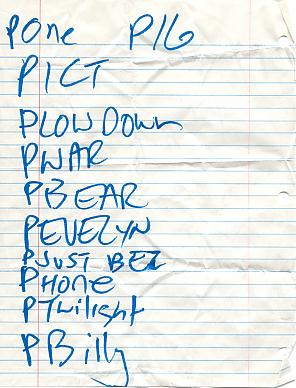 POne P/G
PICT
PLOWDOwn
PWAR
PBEAR
PEVELYN
PJUST BEZ
PHOne
PTwilight
PBilly